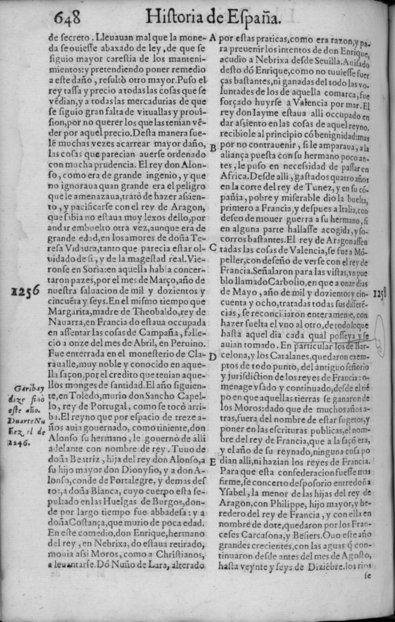 648 Historia de España.
de secreto. Lleuauan mal que la mone-
da se ouiesse abaxado de ley, de que se
siguio mayor carestia de los manteni-
mientos: y pretendiendo poner remedio
a este daño, resultò otro mayor. Puso el
rey tassa y precio a todas las cosas que se
vẽdian, y a todas las mercadurias de que
se siguio gran falta de vituallas y proui-
sion, por no querer los que las tenian vẽ-
der por aquel precio. Desta manera sue-
lẽ muchas vezes acarrear mayor daño,
las cosas que parecian auerse ordenado
con mucha prudencia. El rey don Alon-
so, como era de grande ingenio, y que
no ignoraua quan grande era el peligro
que le amenazaua, tratò de hazer assien-
to, y pacificarse con el rey de Aragon,
que sabia no estaua muy lexos dello, por
andar embuelto otra vez, aunque era de
grande edad, en los amores de doña Te-
resa Vidaura, tanto que parecia estar ol-
uidado de si, y de la magestad real. Vie-
ronse en Soria: en aquella habla concer-
taron pazes, por el mes de Março, año de
1256
nuestra saluacion de mil y dozientos y
cincuẽta y seys. En el mismo tiempo que
Margarita, madre de Theobaldo, rey de
Nauarra, en Francia do estaua ocupada
en assentar las cosas de Campaña, falle-
cio a onze del mes de Abril, en Peruino.
Fue enterrada en el monesterio de Cla-
raualle, muy noble y conocido en aque-
lla saçon, por el credito que tenian aque-
llos monges de santidad. El año siguien-
Garibay
dize finò
este año.
Duarte Nu
ñez, el de
1246.
te, en Toledo, murio don Sancho Capel-
lo, rey de Portugal, como se tocò arri-
ba. El reyno que por espacio de treze a-
ños auia gouernado, como tiniente, don
Alonso su hermano, le gouerno de alli
adelante con nombre de rey. Tuuo de
doña Beatriz, hija del rey don Alonso, a
su hijo mayor don Dionysio, y a don A-
lonso, conde de Portalegre, y demas des-
to; a doña Blanca, cuyo cuerpo esta se-
pultado en las Huelgas de Burgos, don-
de por largo tiempo fue abbadesa: y a
doña Costança, que murio de poca edad.
En este comedio, don Enrique, hermano
del rey, en Nebrixa, do estaua retirado,
mouia assi Moros, como a Christianos,
a leuantarse. Dõ Nuño de Lara, alterado
A por estas praticas, como era razon, y pa-
ra preuenir los intentos de don Enrique,
acudio a Nebrixa desde Seuilla. Auisado
desto dõ Enrique, como no tuuiesse fuer-
ças bastantes, ni ganadas del todo las vo-
luntades de los de aquella comarca, fue
forçado huyrse a Valencia por mar. El
rey don Iayme estaua alli occupado en
dar assiento en las cosas de aquel reyno,
recibiole al principio cõ benignidad: mas
B por no contrauenir, si le amparaua, a la
aliança puesta con su hermano poco an-
tes, le puso en necesidad de passar en
Africa. Desde alli, gastados quatro años
en la corte del rey de Tunez, y en su cõ-
pañia, pobre y miserable dio la buelta,
primero a Francia, y despues a Italia, con
deseo de mouer guerra a su hermano, si
en alguna parte hallasse acogida, y so-
corros bastantes. El rey de Aragon assen
C tadas las cosas de Valencia, se fue a Mõ-
peller, con deseño de verse con el rey de
Francia. Señalaron para las vistas, vn pue
blo llamado Carbolio, en que a onze dias
1258
de Mayo, año de mil y dozientos y cin-
cuenta y ocho, tratadas todas sus diffe-
cias, se reconciliaron enteramente, con
hazer suelta el vno al otro, de todo lo que
hasta aquel dia cada qual posseya y se
auian tomado. En particular los de Bar-
D celona, y los Catalanes, quedaron exem-
ptos de todo punto, del antiguo señorio
y jurisdiction de los reyes de Francia: o-
menage vsado y continuado, desde el tiẽ
po en que aquellas tierras se ganaron de
los Moros: dado que de muchos años a-
tras, fuera del nombre de estar sugetos, y
poner en las escrituras publicas, el nom-
bre del rey de Francia, que a la saçõ era,
y el año de su reynado, ninguna cosa po
E dian alli, ni hazian los reyes de Francia.
Para que esta confederacion fuesse mas
firme, se concerto desposorio entre doña
Ysabel, la menor de las hijas del rey de
Aragon, con Philippe, hijo mayor, y he-
redero del rey de Francia, y con ella en
nombre de dote, quedaron por los Fran-
ceses Carcasona, y Besiers. Ouo este año
grandes crecientes, con las aguas q̃ con-
tinuaron desde antes del mes de Agosto,
hasta veynte y seys de Diziẽbre, los rios
se